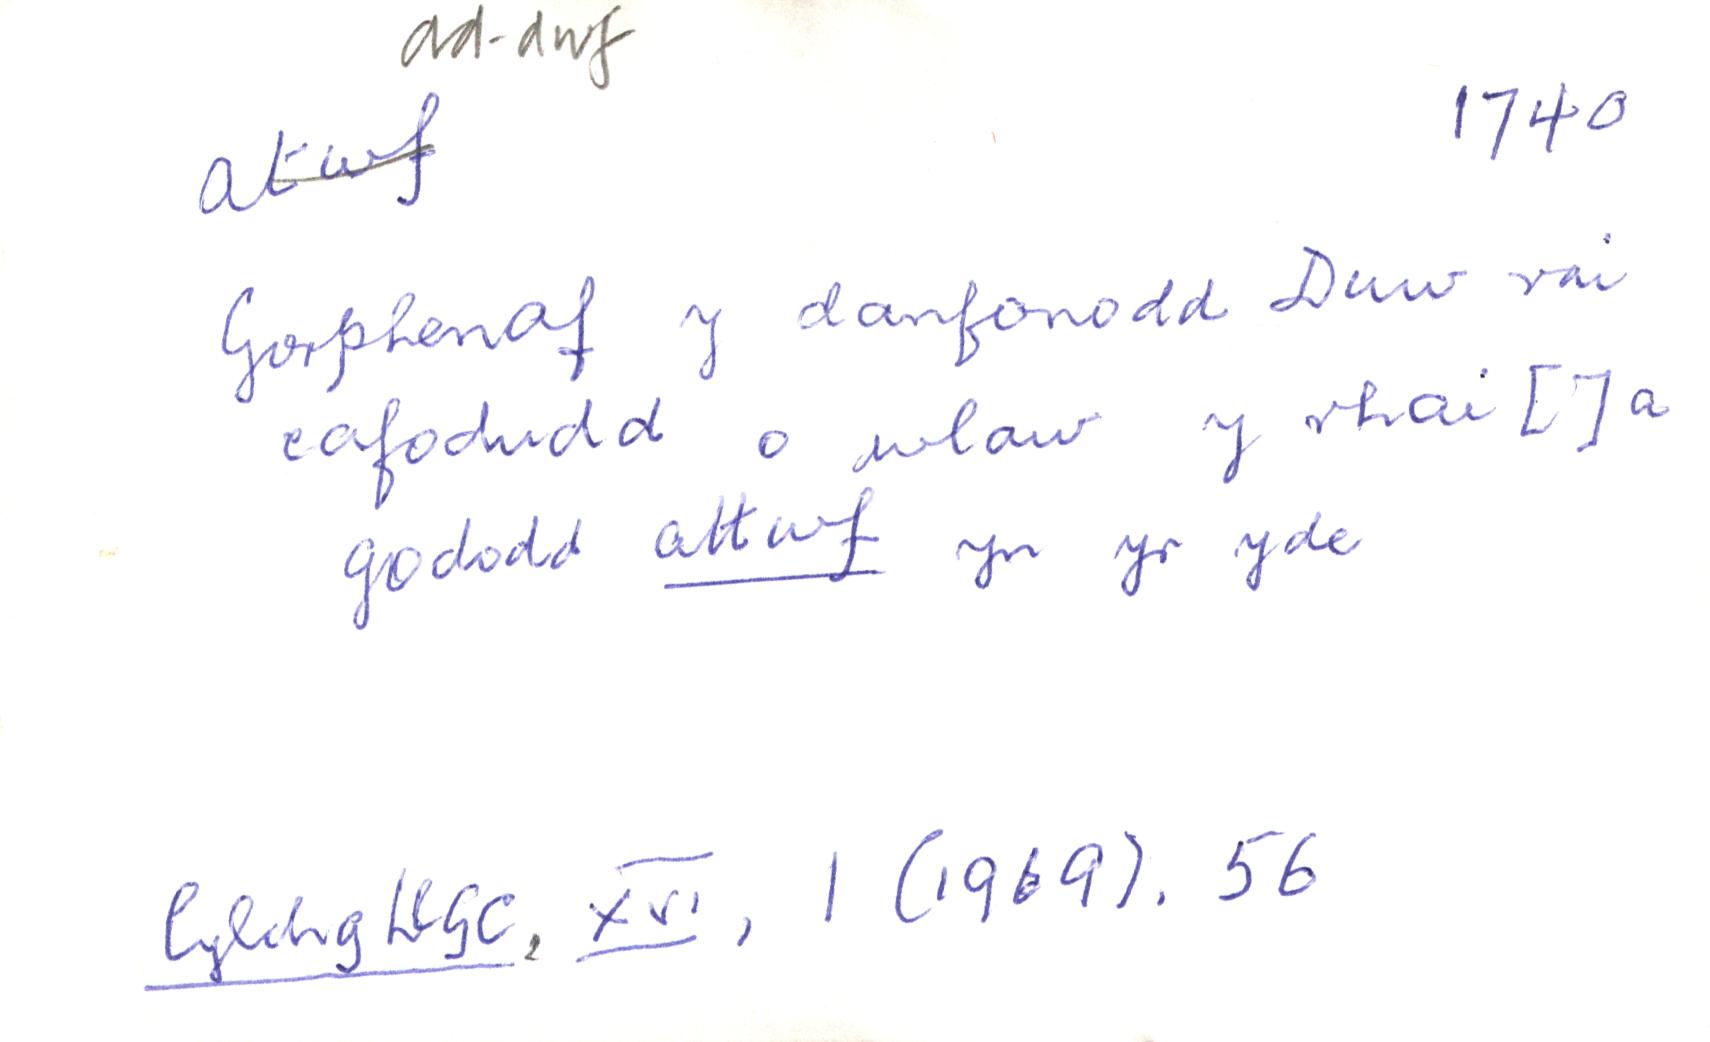 ad-dwf
atwf
1740
Gorphenaf y danfonodd Duw rai
cafodudd o wlaw y rhai [ ] a
gododd attwf yn yr yde
CylchgLlGC, XVI, 1 (1969), 56